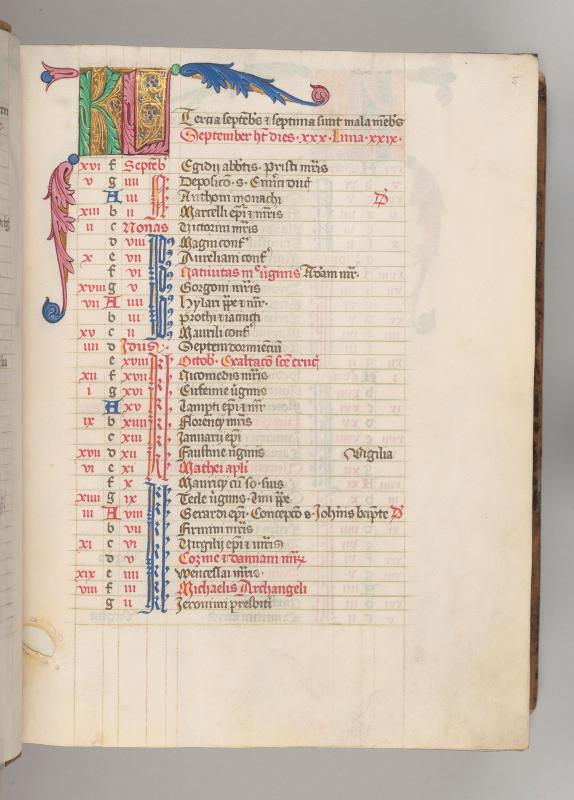 KL
Tercia septēbs ⁊ septima sunt mala mēbs
September ht dies · xxx · luna · xxix ·
xvi f Septēb Egidii abbtis · Prisci mris
v g iiii
A iii Anthoni monachi D
xiii b ii Marcelli epi ⁊ mris
ii c Nonas Victorini mris
d viii Magni conf
x e vii Aureliani conf
f vi Natiuitas Adriani mr ·
xviii g v Gorgoni mris
vii A iiii Hylari ppe ⁊ mr ·
b iii Prothi ⁊ iacincti
xv c ii Maurili conf
iiii d Idus Septem dormiencium
e xviii Octob · Exaltacō scē cruc
xii f xvii Nicomedis mris
i g xvi Eufemie virginis
A xv Lamperti epi ⁊ mr
ix b xiiii Florencij mris
c xiii Januarij epi
xvii d xii Faustine virginis Vigilia
vi e xi Mathei apli
f x Mauricij cū so · suis
xiiii g ix Tecle virginis · Lini ppe
iii A viii Gerardi epi · Concepcō s · Johīnis baptiste D
b vii Firmini mris
xi c vi Virgilij epi ⁊ mris
d v Cozme ⁊ damiani
xix e iiii Wenceslai mris ·
viii f iii Michaelis Archangeli
g ii Jeronimi presbiti